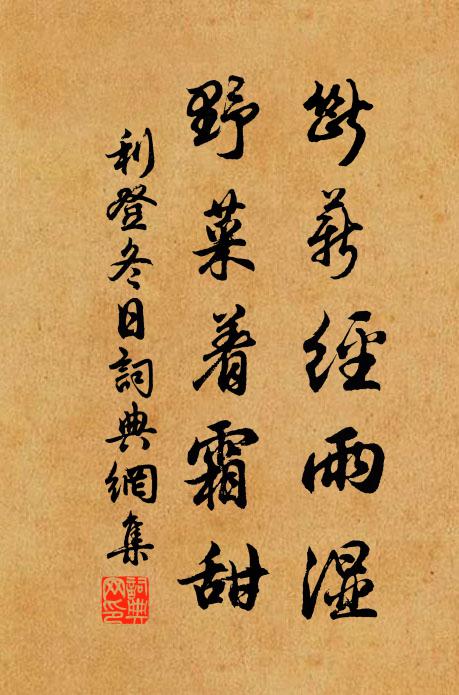 斷薪經雨湿
野菜着霜甜
利登冬日詞典網集
詞典网印